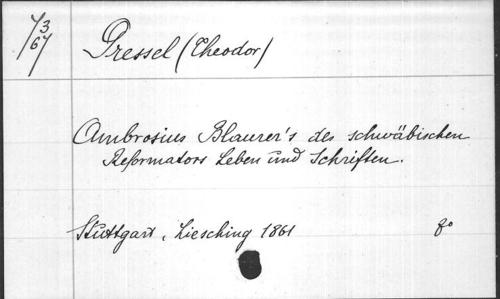 Pressel (Theodor)
Ambrosius Blaurer's des schwäbischen
Reformators Leben und Schriften.
Stuttgart, Liesching 1861 8o